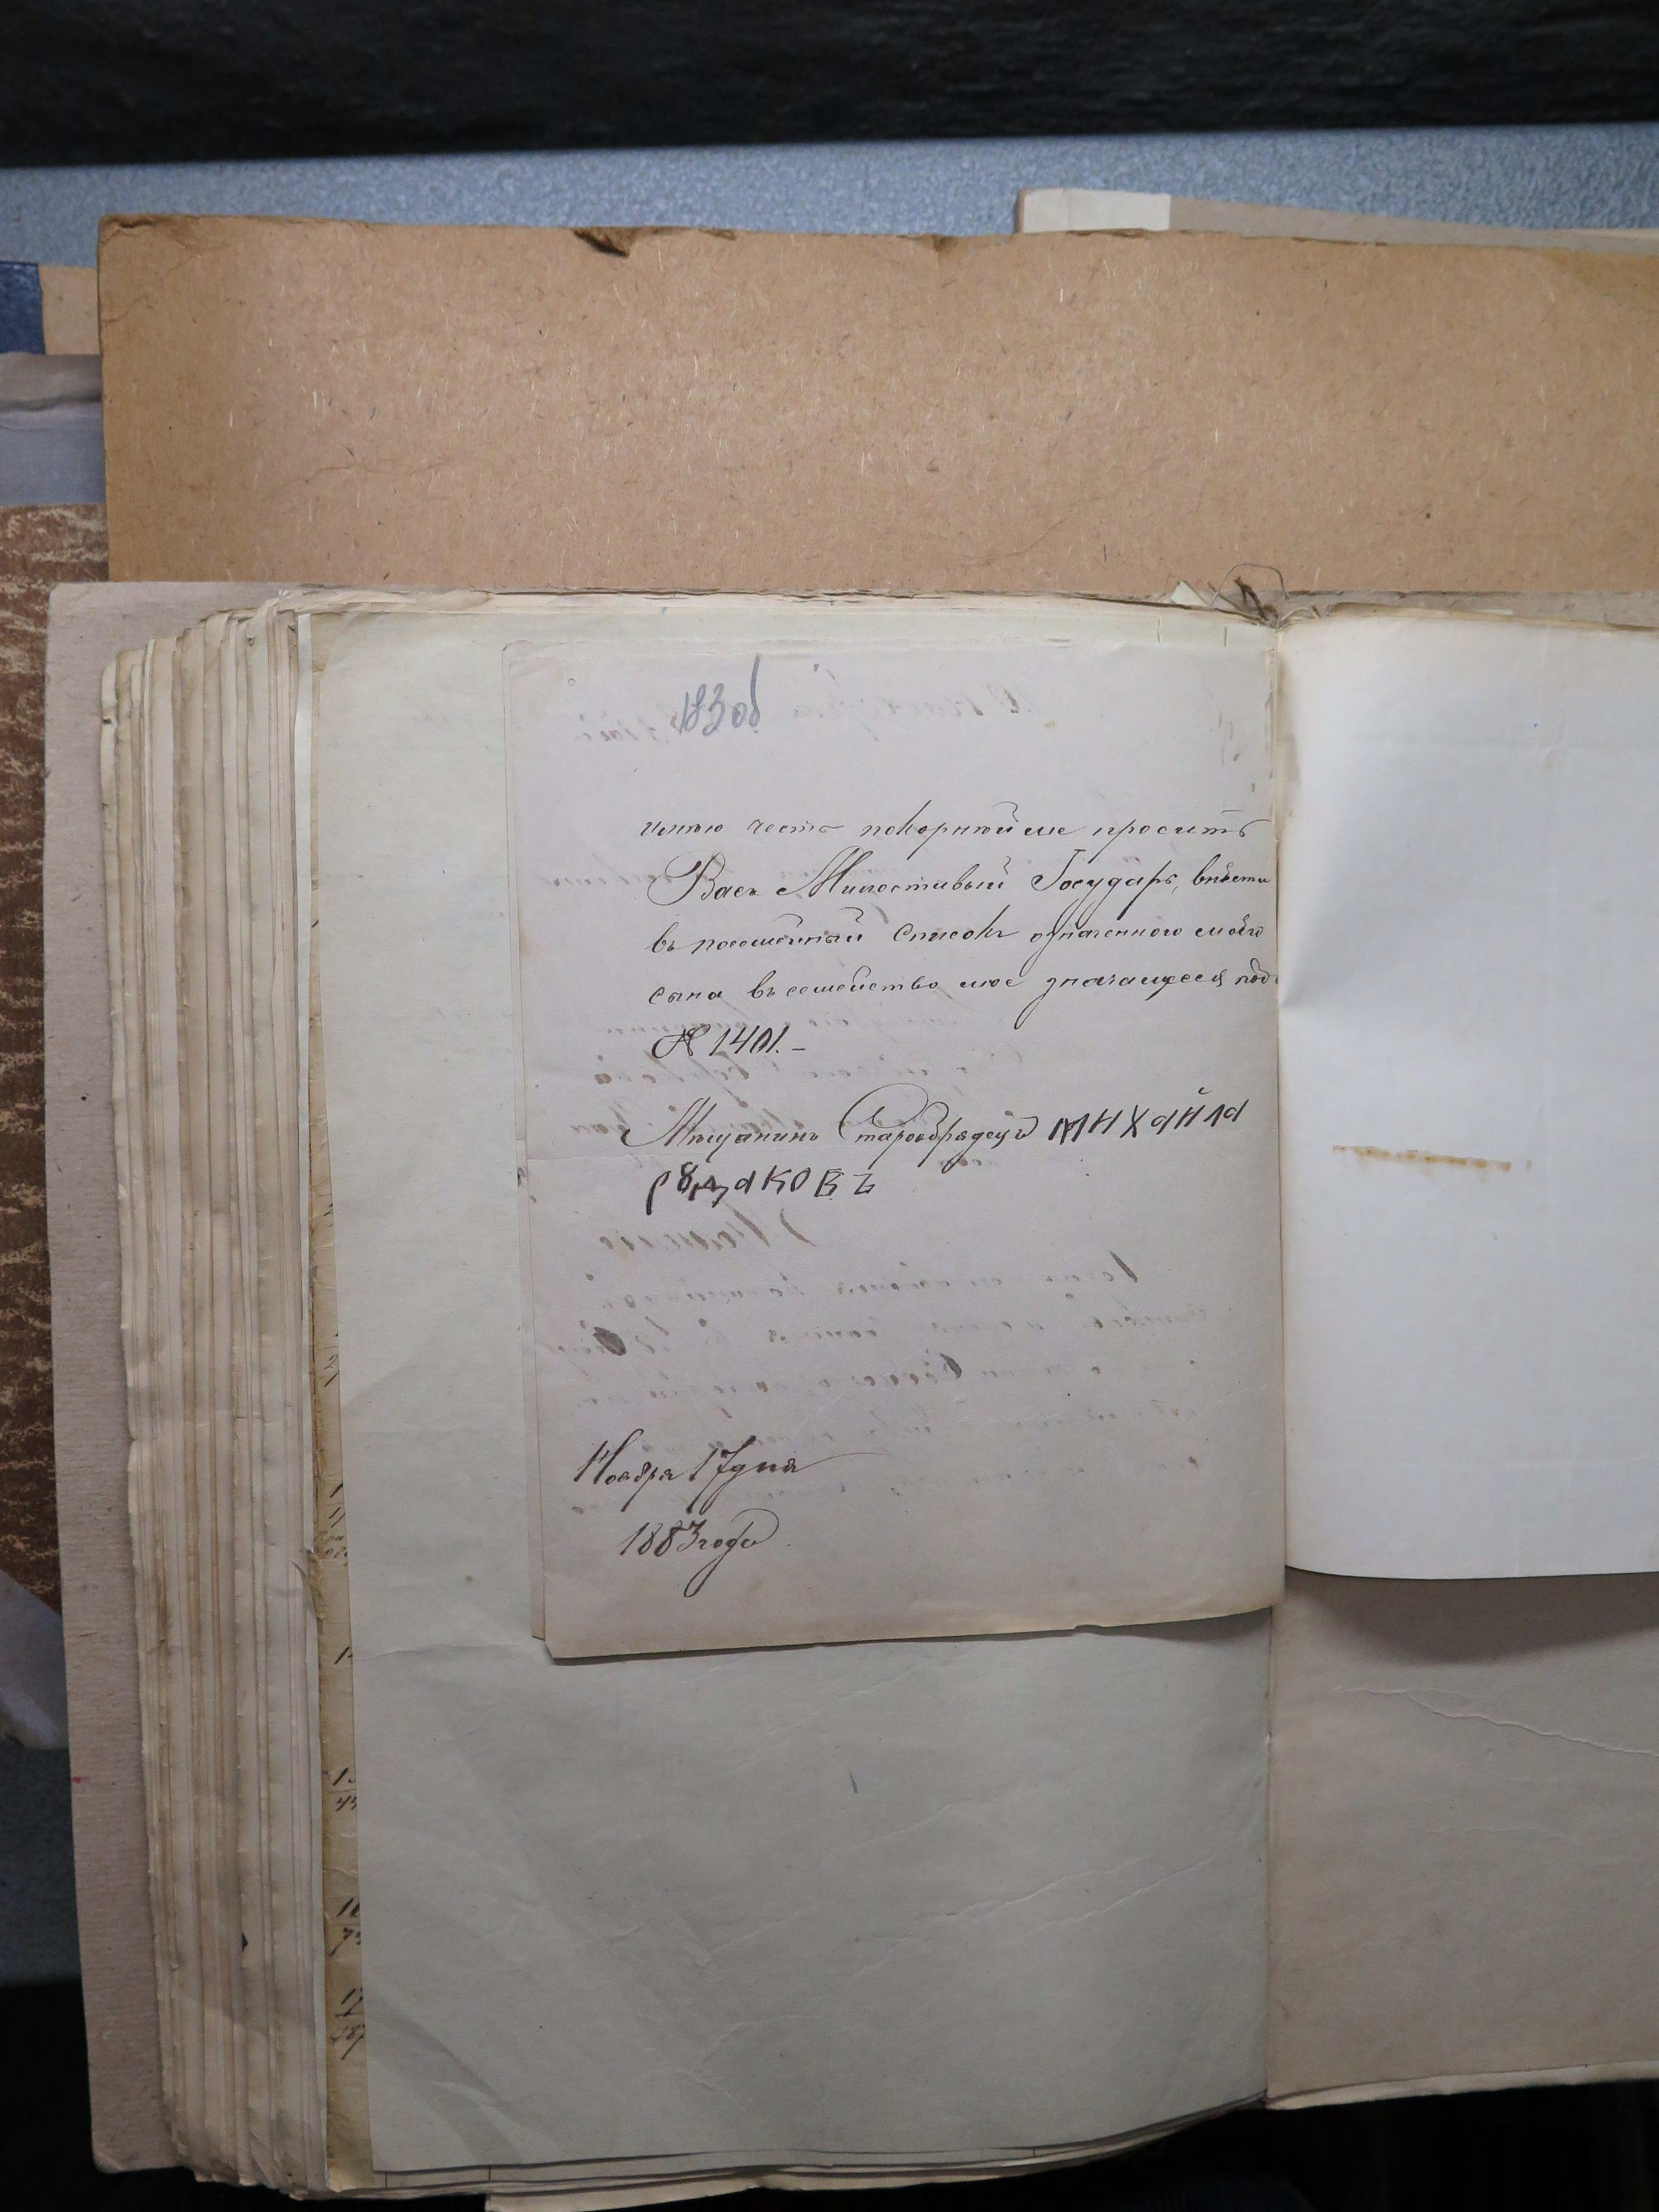 183об
имѣю честь покорнѣйше просить
Васъ Милостивый Государь, внѣсти
въ посемѣйный списокъ означенного моего
сына въ семейство мое значащееся подъ
№ 1401. –
Мѣщанинъ Старообрядецъ михайла
Ноября 17 дня
1883 года